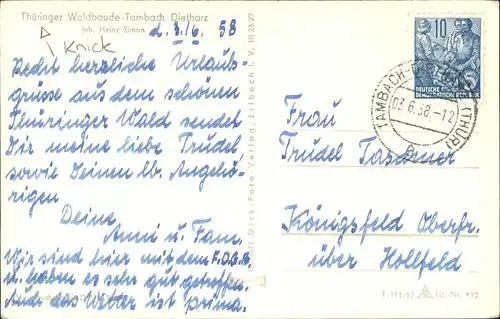 Thüringer Waldbaude-Tambach Dietharz
Inh. Heinz Simon
Knick
d. 3./6. 58
Recht herzliche Urlaubs-
grüsse aus dem schönen
Thüringer Wald sendet
Dir meine liebe Trudel
sowie Deinen lb. Angehö-
rigen
Deine
Anni u. Fam.
Wir sind hier mit dem
u. haben es sehr gut getroffen.
Auch das Wetter ist prima.
III 23 27
Foto Verlag Erlbach i. V.
10
DEUTSCHE
DEMOKRATISCHE REPUBLIK
TAMBACH-DIETHARZ (THÜR)
03.6.58.-12
Frau
Trudel
Königsfeld Oberfr.
über Hollfeld
T 111/57 A 172